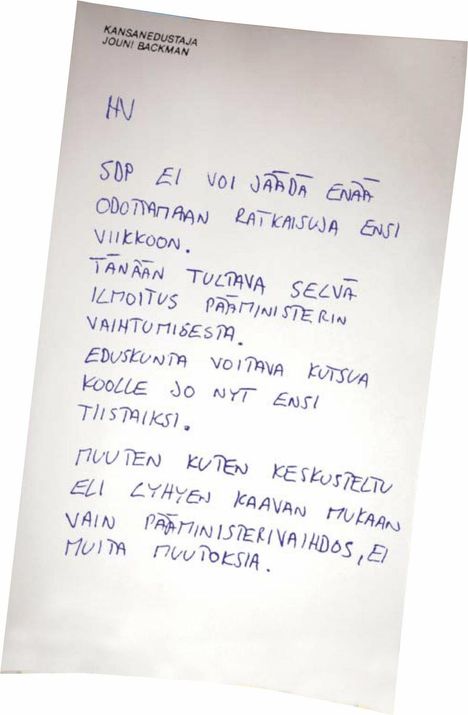 KANSANEDUSTAJA
JOUNI BACKMAN
HV
SDP EI VOI JÄÄDÄ ENÄÄ
ODOTTAMAAN RATKAISUJA ENSI
VIIKKOON.
TÄNÄÄN TULTAVA SELVÄ
ILMOITUS PÄÄMINISTERIN
VAIHTUMISESTA.
EDUSKUNTA VOITAVA KUTSUA
KOOLLE JO NYT ENSI
TIISTAIKSI.
MUUTEN KUTEN KESKUSTELTU
ELI LYHYEN KAAVAN MUKAAN
VAIN PÄÄMINISTERIVAIHDOS, EI
MUITA MUUTOKSIA.